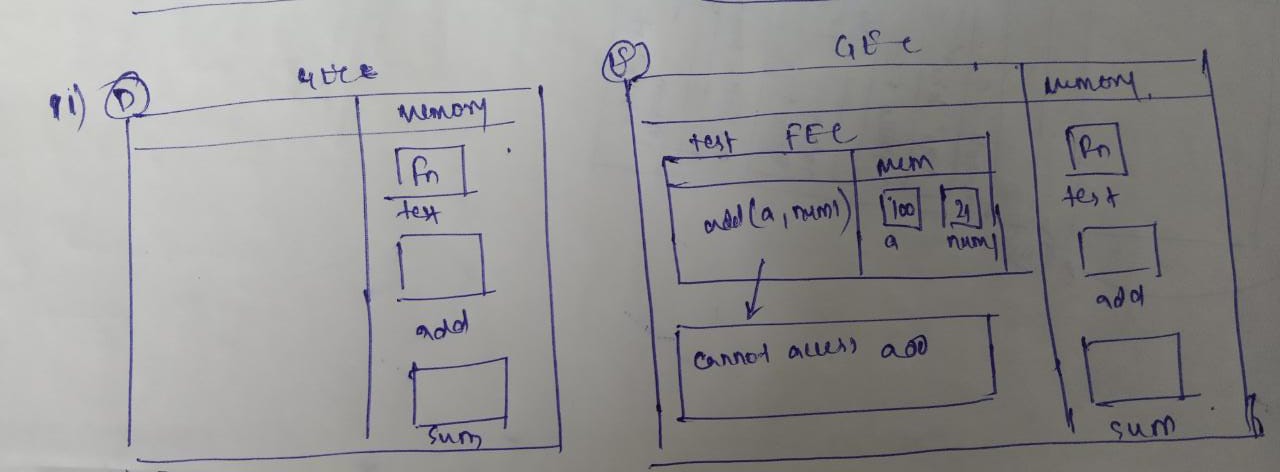 ii) D GEC
Memory
fn
test
add
sum
E GEC
Memory
test FEC
mem
add(a, num1)
100
21
a
num1
cannot access add
fn
test
add
sum